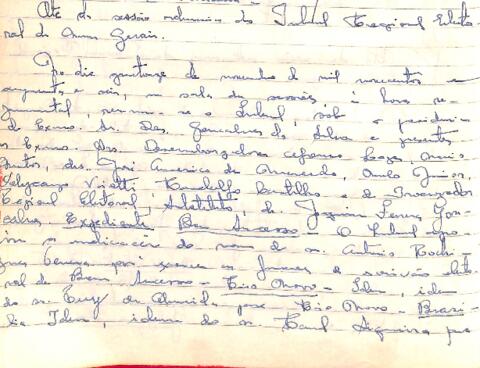 Ata da sessão ordinária do Tribunal Regional Eleito-
ral de Minas Gerais.
No dia quatorze de novembro de mil novecentos e
cinquenta e seis, na sala de sessões, à hora re-
gimental, reuniu-se o Tribunal, sob a presidência
do Exmo. Sr. Des. Gonçalves da Silva e presentes
os Exmos. Srs. Desembargadores
des. José Americo de Macedo,
Regional Eleitoral, substituto, dr. Joaquim Ferreira Gon-
çalves. Expediente Bom Sucesso - O Tribunal apro-
vou a indicação do nome do sr. Antônio Rodri-
gues para exercer as funções de escrivão eleito-
ral de Bom Sucesso - Rio Novo - Idem, idem
do sr. Ruy de Almeida para Rio Novo - Brasí-
lia Idem, idem do sr. Raul Siqueira para